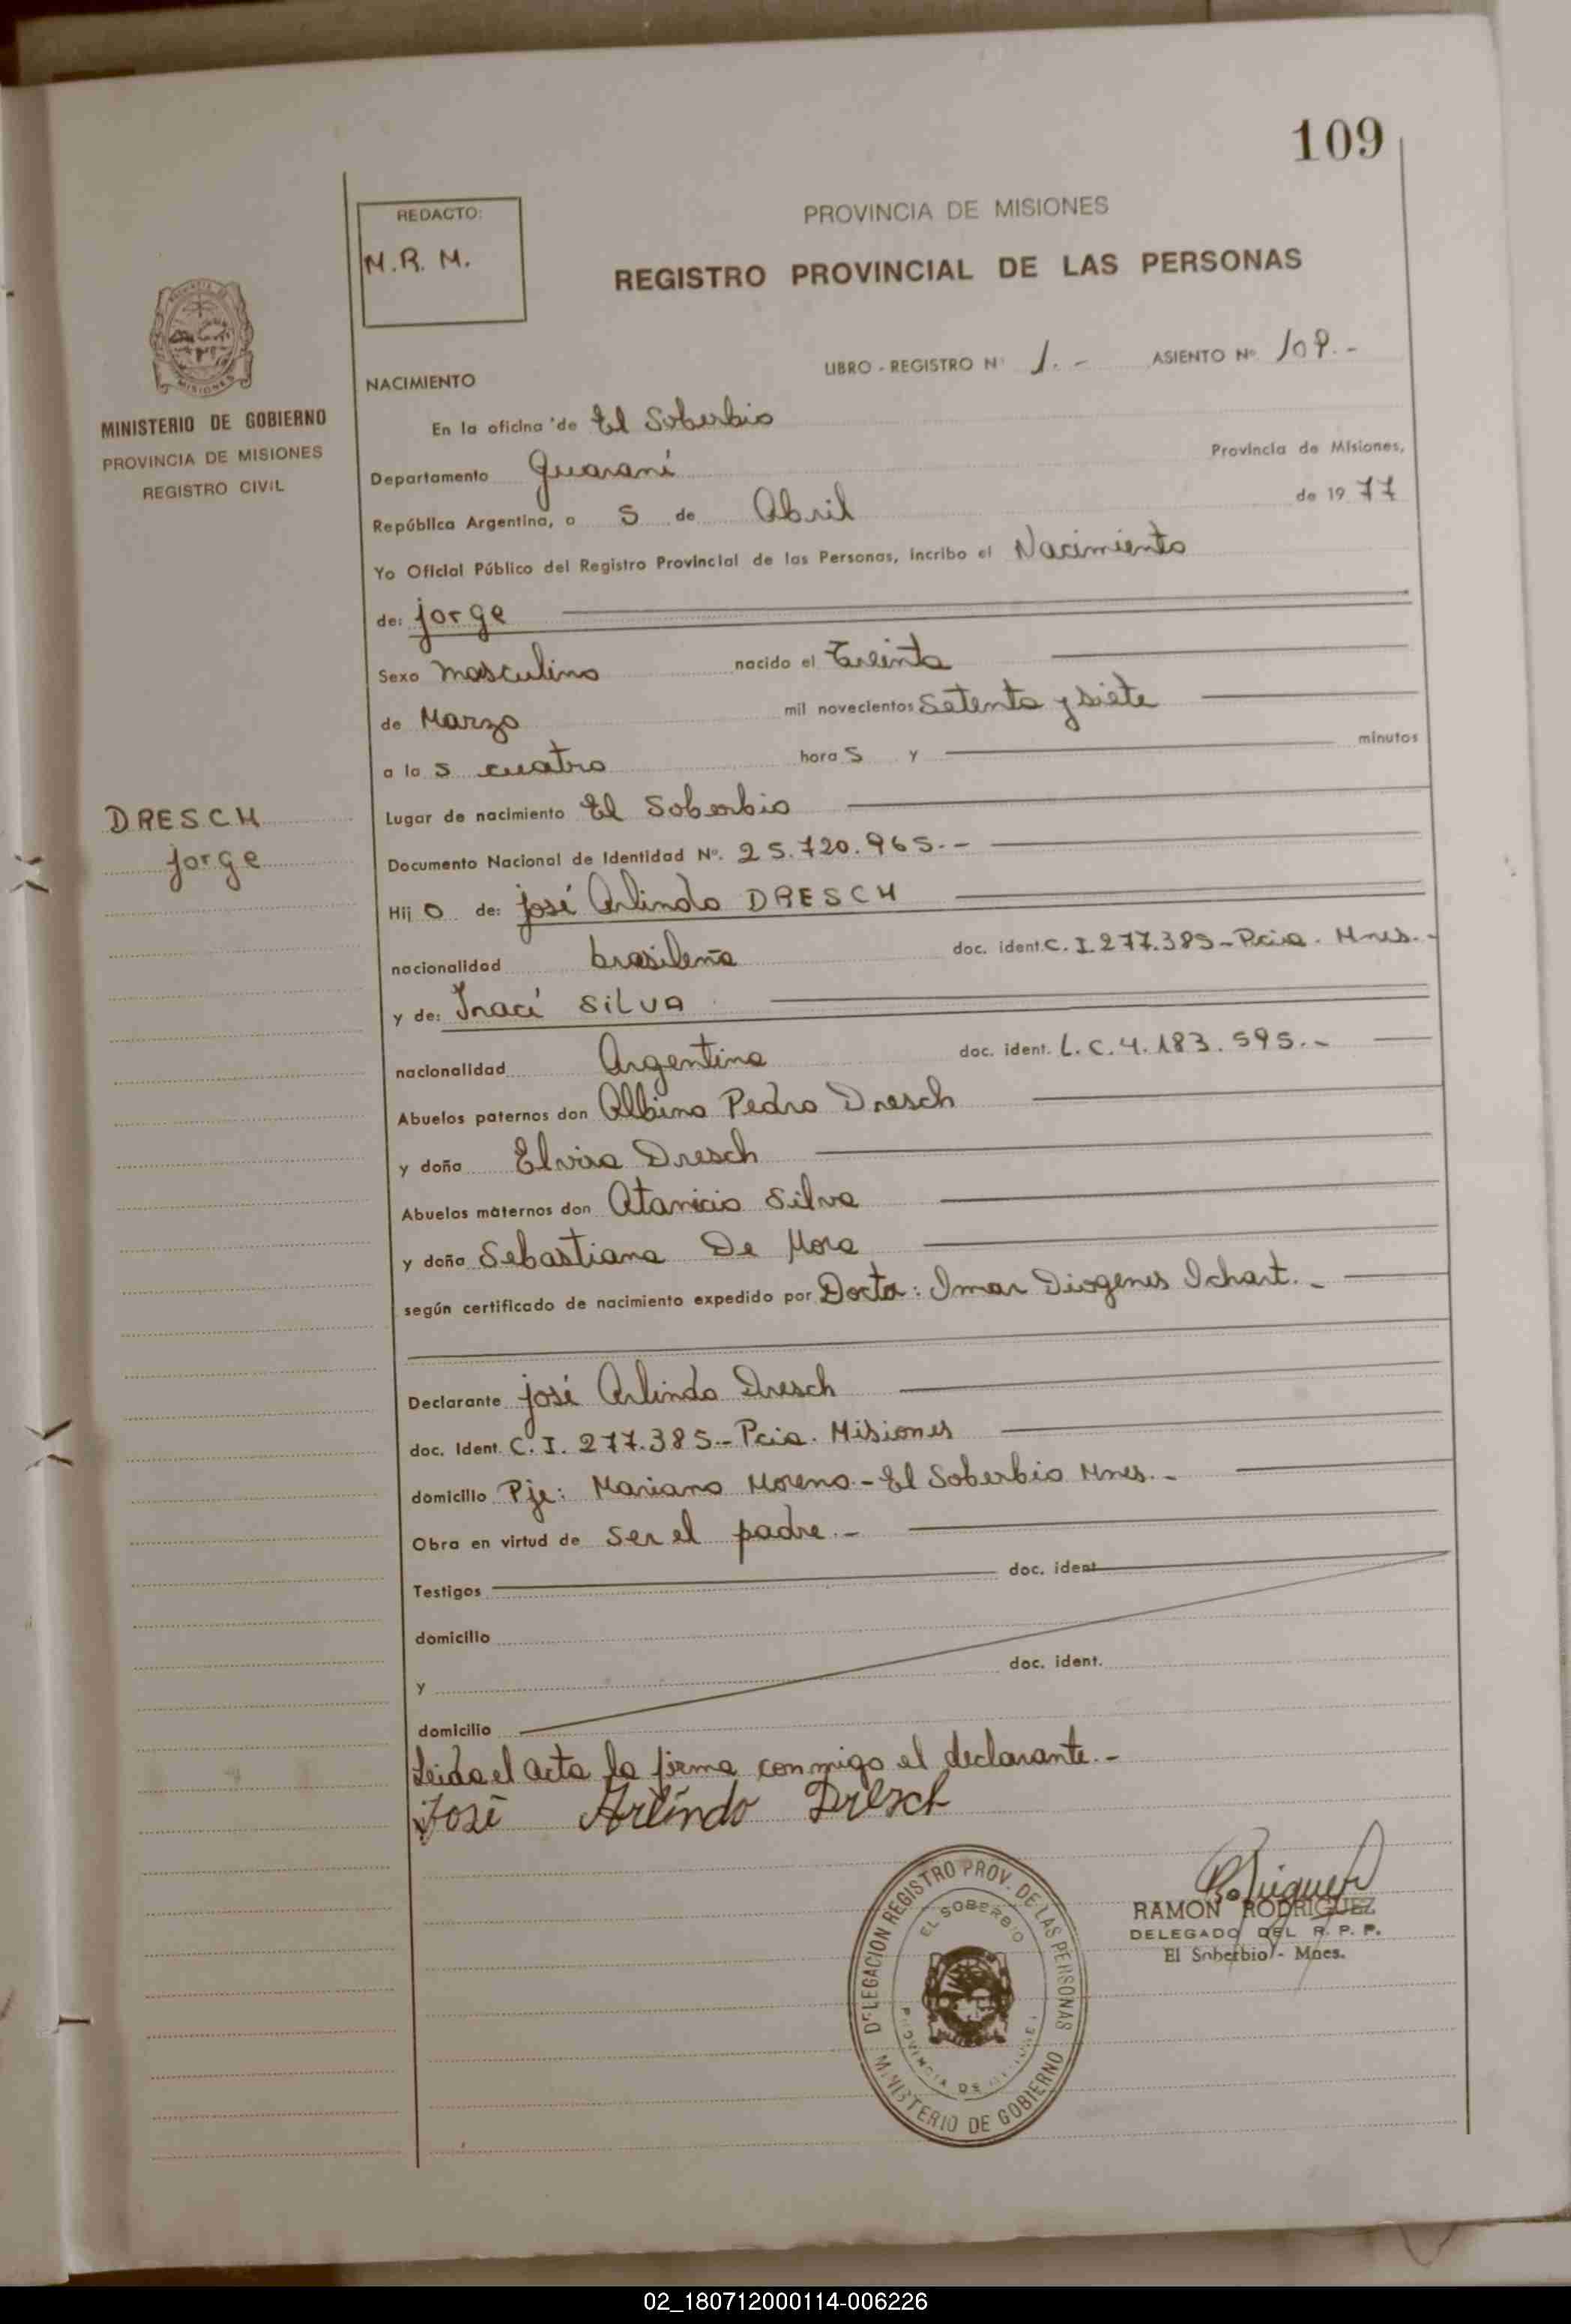 109
REDACTO:
M.R.M.
PROVINCIA DE MISIONES
REGISTRO PROVINCIAL DE LAS PERSONAS
MINISTERIO DE GOBIERNO
PROVINCIA DE MISIONES
REGISTRO CIVIL
LIBRO - REGISTRO N° 1.- ASIENTO Nº 109.-
NACIMIENTO
En la oficina de El Soberbio
Departamento Guaraní Provincia de Misiones,
República Argentina, a 5 de Abril de 1977
Yo Oficial Público del Registro Provincial de las Personas, incribo el Nacimiento
de: Jorge
Sexo masculino nacido el Treinta
de Marzo mil novecientos Setenta y siete
a las cuatro horas y minutos
Lugar de nacimiento El Soberbio
DRESCH
Jorge
Documento Nacional de Identidad Nº. 25.720.965.-
Hijo de: José Arlindo DRESCH
nacionalidad brasileña doc. ident. C.I. 277.385-Pcia. Mnes.-
y de: Iraci SILVA
nacionalidad Argentina doc. ident. L.C. 4.183.595.-
Abuelos paternos don Albino Pedro Dresch
y doña Elvira Dresch
Abuelos maternos don Silva
y doña Sebastiana De Mora
según certificado de nacimiento expedido por Doctor: Imar Diogenes Ichart.-
Declarante José Arlindo Dresch
doc. Ident. C.I. 277.385-Pcia. Misiones
domicilio Pje: Mariano Moreno-El Soberbio Mnes.-
Obra en virtud de ser el padre.-
Testigos doc. ident
domicilio
y doc. ident.
domicilio
Leida el acta la firma conmigo el declarante.-
José Arlindo Dresch
DELEGACION REGISTRO PROV. DE LAS PERSONAS
EL SOBERBIO
PROVINCIA DE MISIONES
MINISTERIO DE GOBIERNO
RAMON RODRIGUEZ
DELEGADO DEL R. P. P.
El Soberbio - Mnes.
02_180712000114-006226